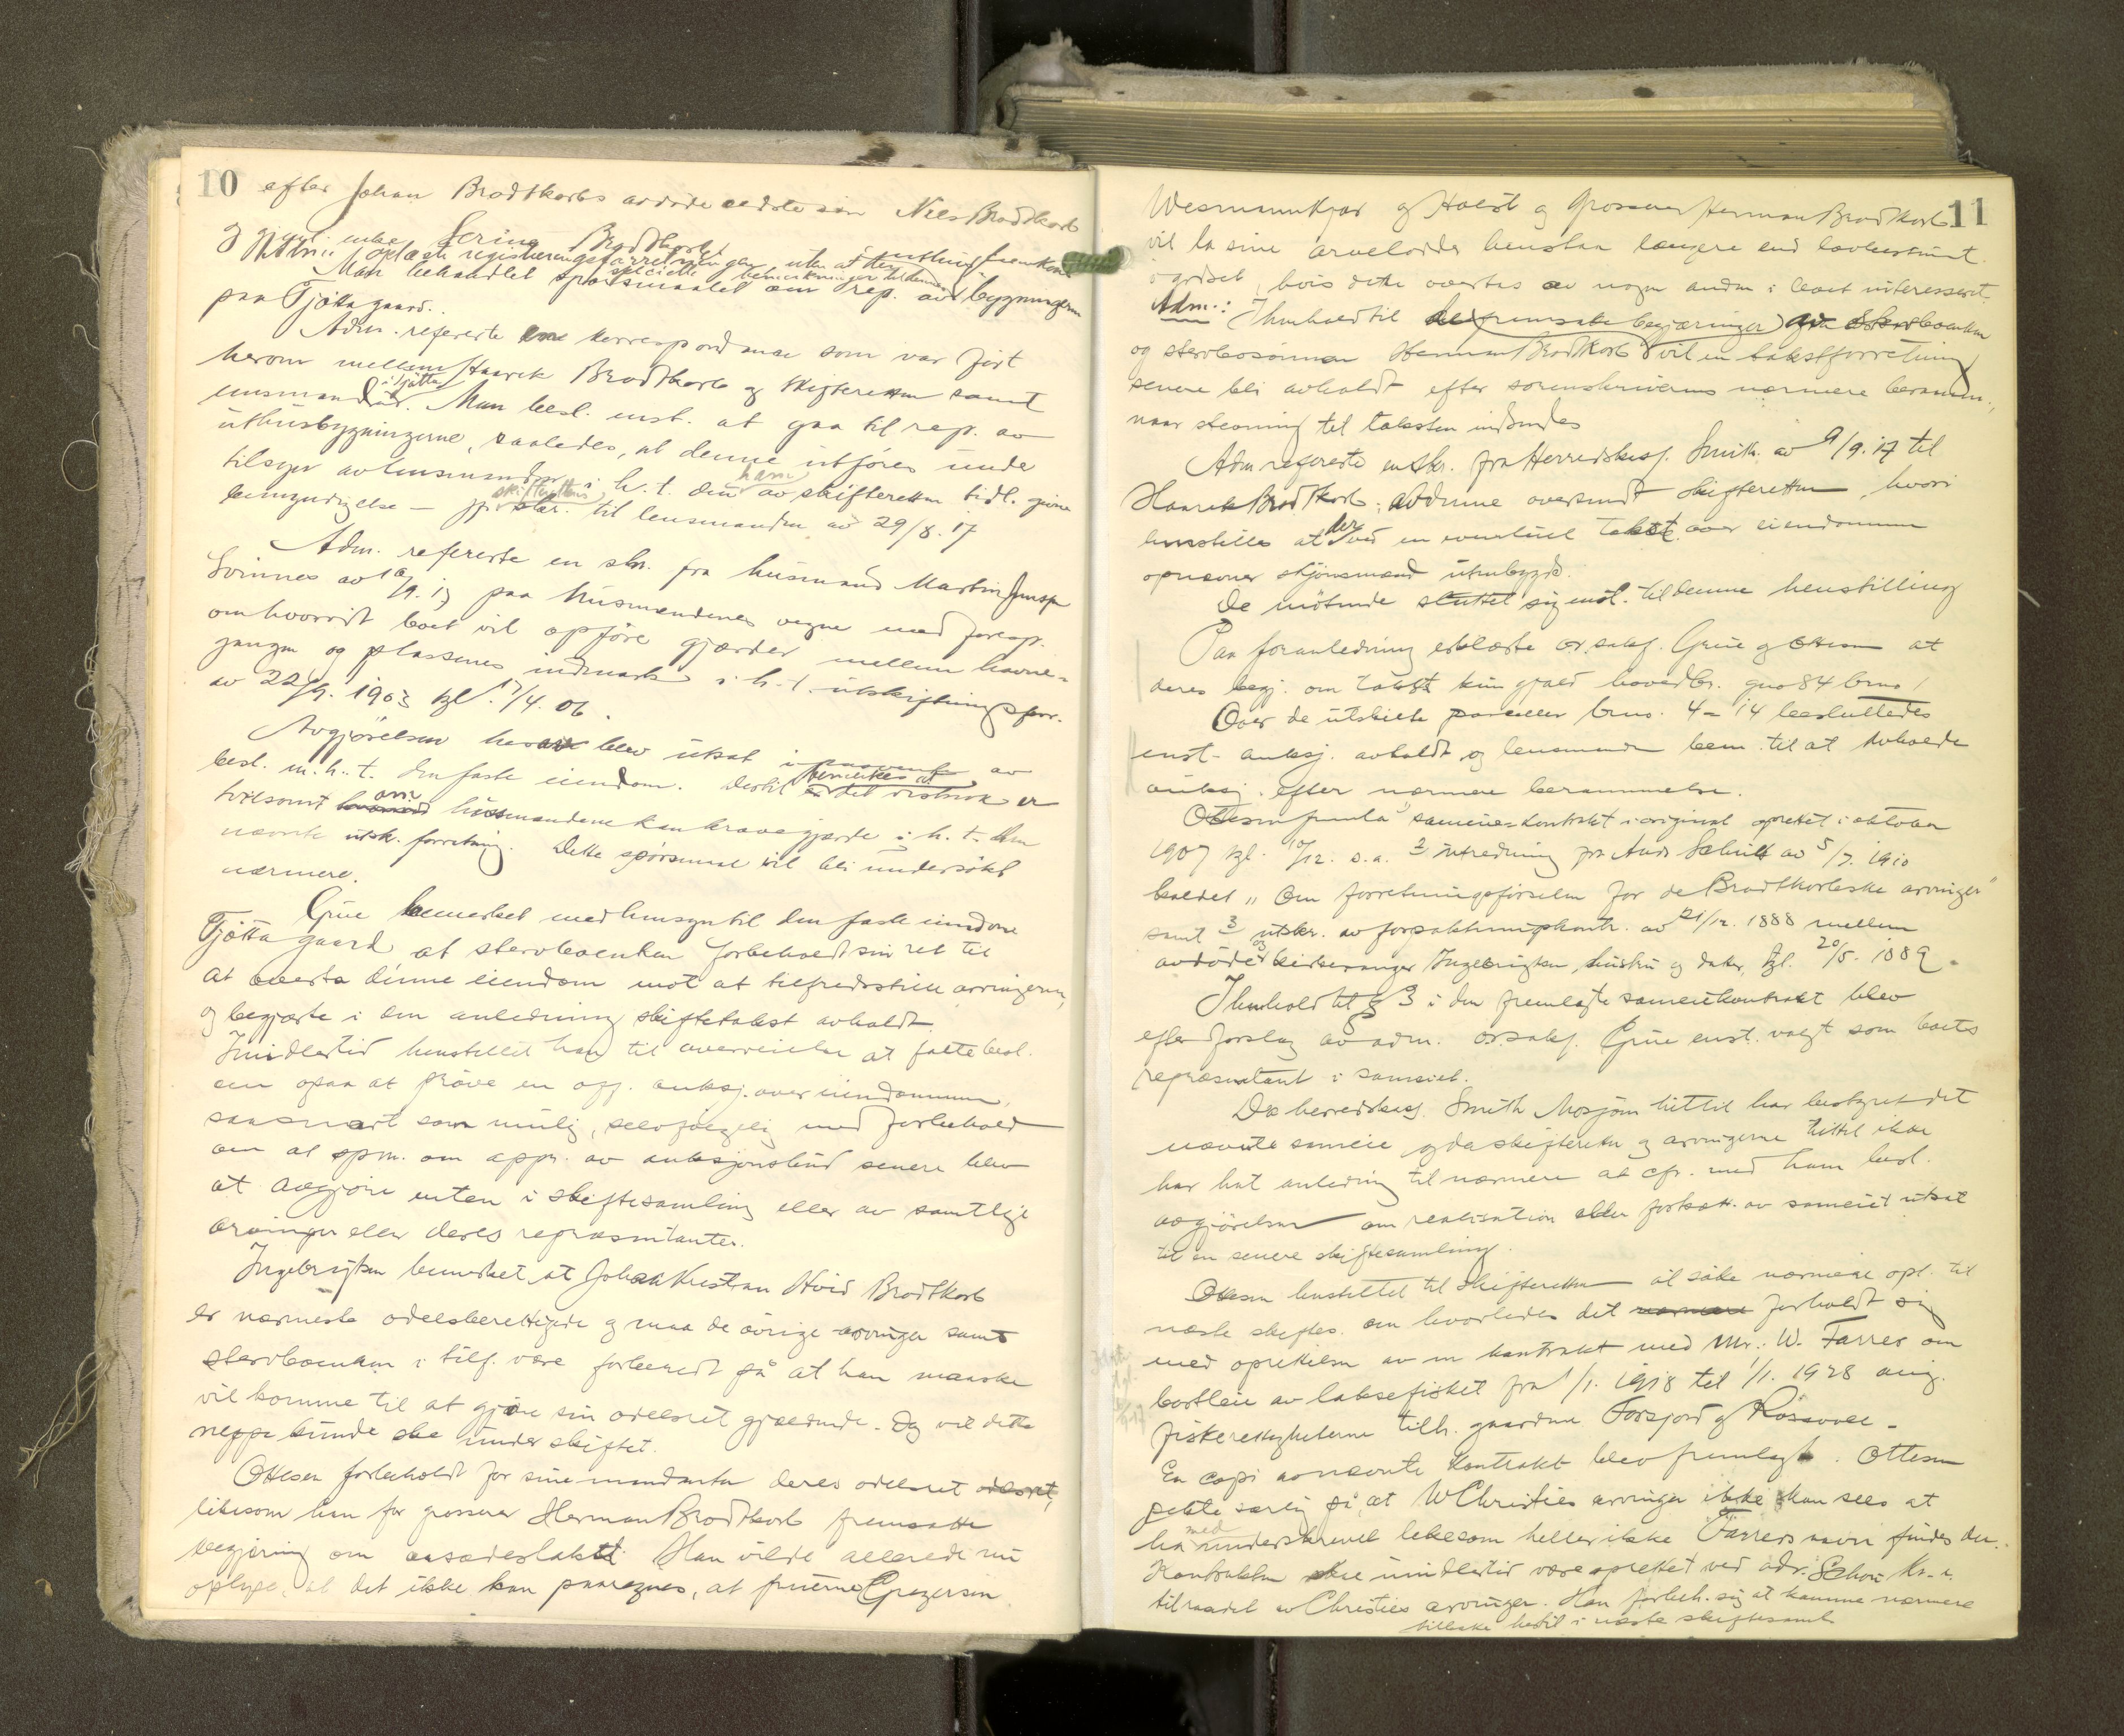 10
efter Johan Brodtkorbs avdöde ældste sön Niels Brodtkorb
og gjenl. enke Serine Brodtkorb.
Adm. oplæste registreringsforretningen uten at der fremkom
specielle bemerkninger til denne
Man behandlet spörsmaalet om rep. av bygningerne
paa Tjötta gaard.
Adm. refererte korrespondance som var fört
herom mellem Haarek Brodtkorb og skifteretten samt
lensmanden i Tjötta. Man besl. enst. at gaa til rep. av
uthusbygningerne, saaledes, at denne utföres under
tilsyn av lensmanden i h. t. den ham av skifteretten tidl. givne
bemyndigelse – jfr. skifterettens skr. til lensmanden av 29/8.17
Adm. refererte en skr. fra husmand Martin Jensen
Svinnes av /9.17 paa husmændenes vegne med foresp.
om hvorvidt boet vil opföre gjærder mellem havne-
gangen og plassenes indmark i h. t. utskiftningsforr.
av 22/9. 1903 tgl. 17/4. 06.
Avgjörelsen herav blev utsat i paavente av
besl. m. h. t. den faste eiendom. Dertil bemerkes at det er
tvilsomt om husmændene kan kræve gjærde i h. t. den
nævnte utsk. forretning. Dette spörsmaal vil bli undersökt
nærmere.
Grüe bemerket med hensyn til den faste eiendom
Tjötta gaard, at stervboenken forbeholdt sin ret til
at overta denne eiendom mot at tilfredsstille arvingerne,
og begjærte i den anledning skiftetakst avholdt.
Imidlertid henstillet han til overveielse at fatte besl.
om ogsaa at pröve en off. auksj. over eiendommen,
saasnart som mulig, selvfölgelig med forbehold
om at spm. om appr. av auksjonsbud senere blev
at avgjöre enten i skiftesamling eller av samtlige
arvinger eller deres repræsentanter.
Ingebrigtsen bemerket, at Johan Kristian Hvid Brodtkorb
er nærmeste odelsberettigede og maa de övrige arvinger samt
stervboenken i tilf. være forberedt på at han maaske
vil komme til at gjöre sin odelsret gjældende. Dog vil dette
neppe kunde ske under skiftet.
Ottesen forbeholdt for sine mandanter deres odelsret odelsret,
likesom han for grosserer Herman Brodtkorb fremsatte
begjæring om aasædestakst. Han vilde allerede nu
oplyse, at det ikke kan paaregnes, at fruerne Gregersen
11
Wesmannkjær og Holst og Grosserer Herman Brodtkorb
vil la sine arvelodder henstaa længere end lovbestemt
i godset, hvis dette overtas av nogen anden i boet interesseret.
Adm.: I henhold til de fremsatte begjæringer av stervboenken
og stervbosönnen Herman Brodtkorb vil en takstforretning
senere bli avholdt efter sorenskriverens nærmere beramm.,
naar stevning til taksten indsendes
Adm refererte en skr. fra Herredskasj. Smith av 9/9.17 til
Haarek Brodtkorb, av denne oversendt skifteretten, hvori
henstilles at der ved en eventuel takst over eiendommen
opnævnes skjönsmænd utenbygds.
De mötende sluttet sig enst. til denne henstilling
Paa foranledning erklærte o.r.sakf. Grüe og Ottesen at
deres begj. om takst kun gjaldt hovedbr. gno 84 brno 1
Over de utskilte parceller brno. 4 – 14 besluttedes
enst. auksj. avholdt og lensmanden bem. til at avholde
auksj. efter nærmere berammelse.
Ottesen fremla 1 sameie-kontrakt i original oprettet i oktober
1907 tgl. 10/12. s.a. 2 utredning fra Andr Schütt av 5/7. 1910
kaldet „Om forretningsförselen for de Brodtkorbske arvinger"
samt 3 utskr. av forpaktningskontr. av 21/12. 1888 mellem
avdöde og kirkesanger Ingebrigtsen, hustru og datter, tgl. 20/5. 1889.
I henhold til § 3 i den fremlagte sameiekontrakt blev
efter forslag av adm. o.r.sakf. Grüe enst. valgt som boets
repræsentant i sameiet.
Da herredskasj. Smith Mosjöen hittil har bestyret det
nævnte sameie og da skifteretten og arvingerne hittil ikke
har hat anledning til nærmere at cfr. med ham besl.
avgjörelsen om realisation eller fortsætt. av sameiet utsat
til en senere skiftesamling.
Ottesen henstillet til skifteretten at söke nærmere opl. til
næste skiftes. om hvorledes det nærmere forholdt sig
med oprettelsen av en kontrakt med Mr. W. Farrer om
bortleie av laksefisket fra 1/1. 1918 til 1/1. 1928 ang.
fiskerettighetene tilh. gaardene Forsjord og Rösvoll –
En copi av nævnte kontrakt blev fremlagt. Ottesen
pekte særlig på, at W Christies arvinger ikke kan sees at
ha med underskrevet likesom heller ikke Farrers navn findes der.
Kontrakten skal imidlertid være oprettet ved adv. Schou Kr.a.
tilraadet av Christies arvinger. Han forbeh. sig at komme nærmere
tilbake hertil i næste skiftesaml.